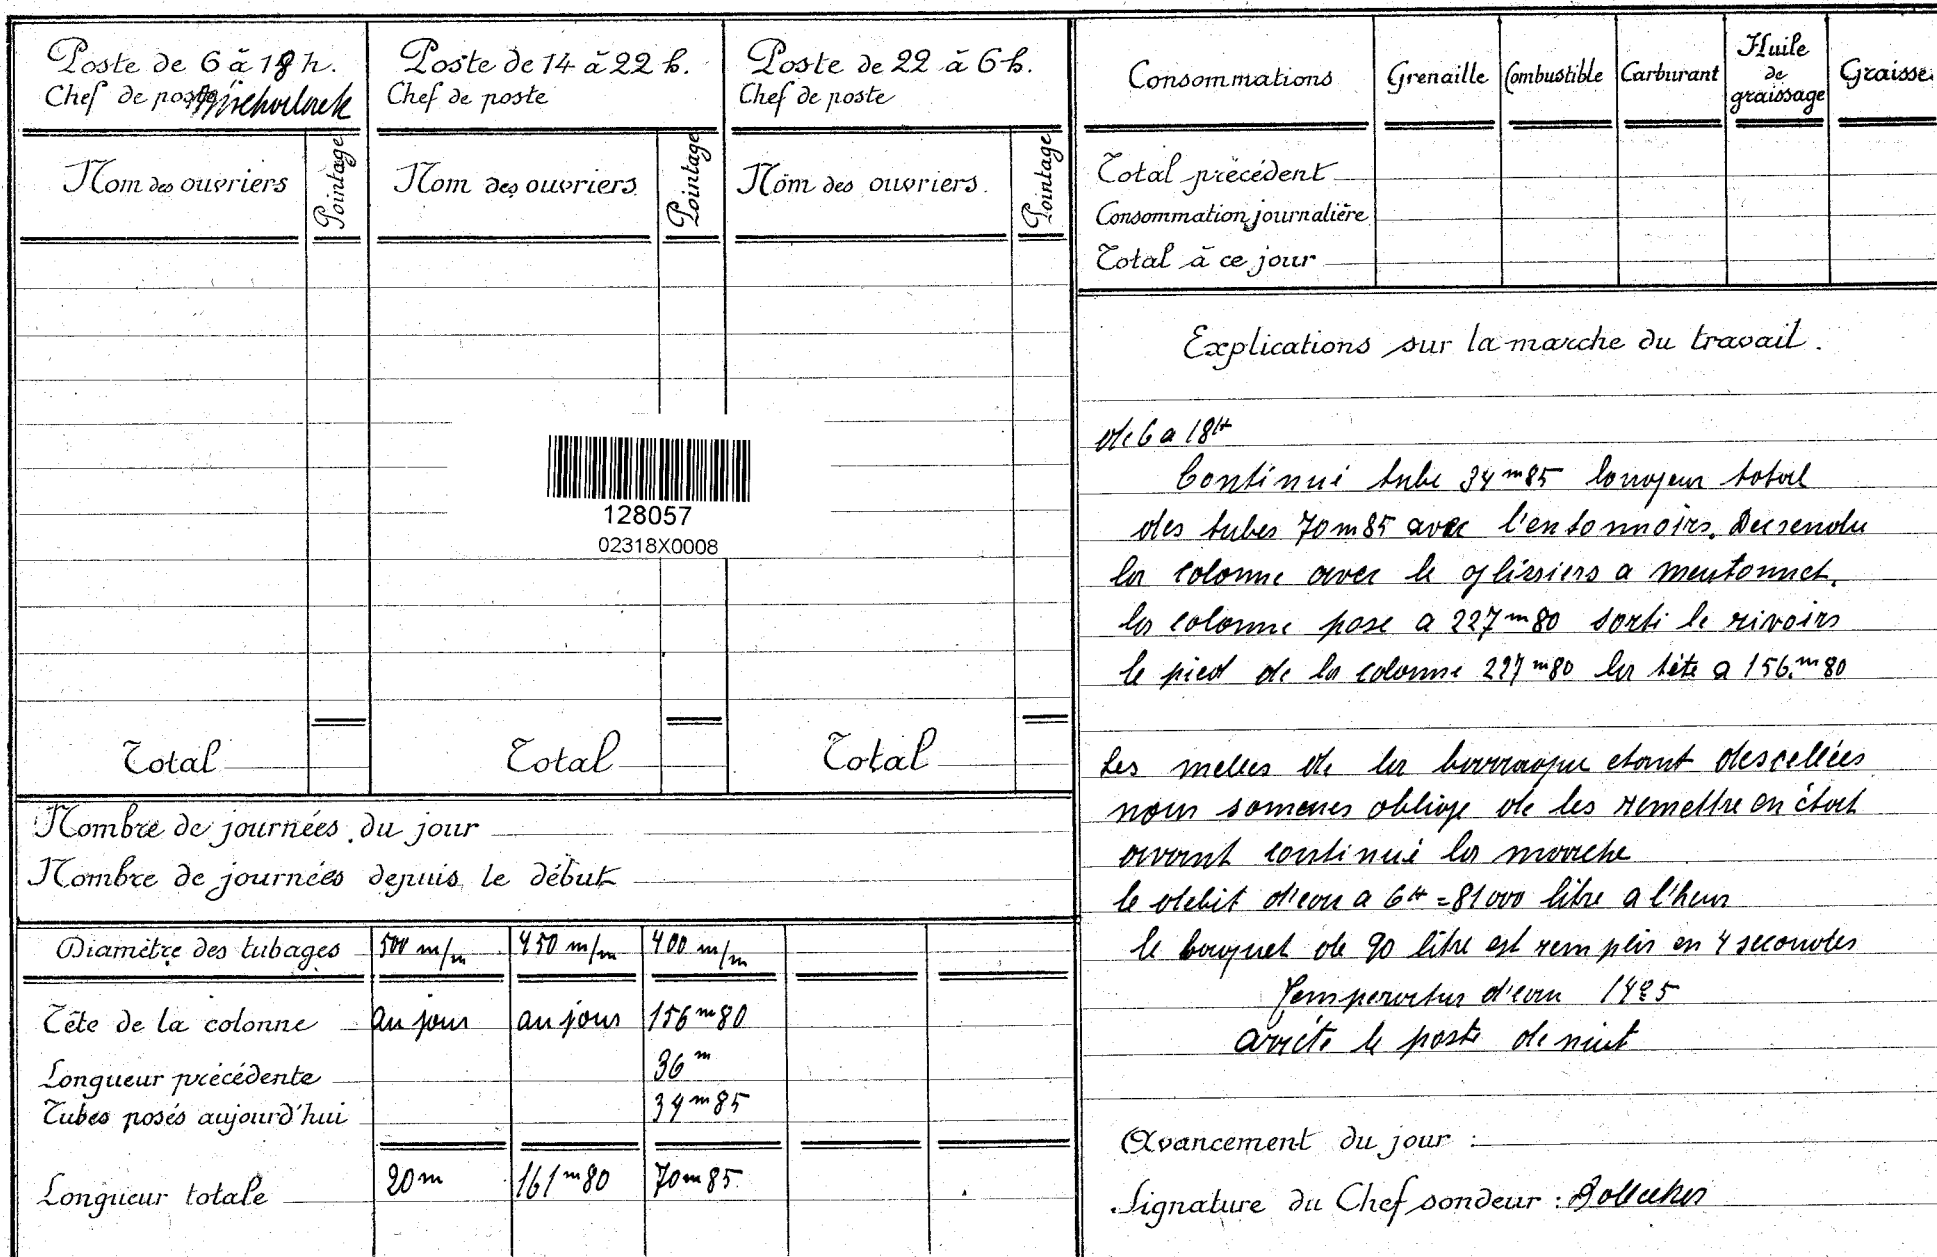 Poste de 6 à 18 h.
Chef de poste
Nom des ouvriers
Pointage
Total
Poste de 14 à 22 h.
Chef de poste
Nom des ouvriers
Pointage
Total
Poste de 22 à 6 h.
Chef de poste
Nom des ouvriers.
Pointage
Total
128057
02318X0008
Nombre de journées du jour
Nombre de journées depuis le début
Diamètre des tubages 500 m/m 450 m/m 400 m/m
Tête de la colonne au jour au jour 156 m 80
Longueur précédente 36 m
Tubes posés aujourd'hui 34 m 85
Longueur totale 20 m 161 m 80 70 m 85
Consommations Grenaille Combustible Carburant Huile de graissage Graisse
Total précédent
Consommation journalière
Total à ce jour
Explications sur la marche du travail.
de 6 a 18 H
Continué tube 34 m 85 longeur total
des tubes 70 m 85 avec l'entonnoirs. Decsendu
la colonne avec le glissiers a mentonnet.
la colonne pose a 227 m 80 sorti le rivoirs
le pied de la colonne 227 m 80 la tête a 156. m 80
Les de la barraque etant descellées
nous sommes oblige de les remettre en état
avant continué la marche
le debit d'eau a 6 H = 81000 litre a l'heur
le baquet de 90 litre est remplis en 4 secondes
Temperatur d'eau 14°5
arrête le poste de nuit
Avancement du jour :
Signature du Chef sondeur :